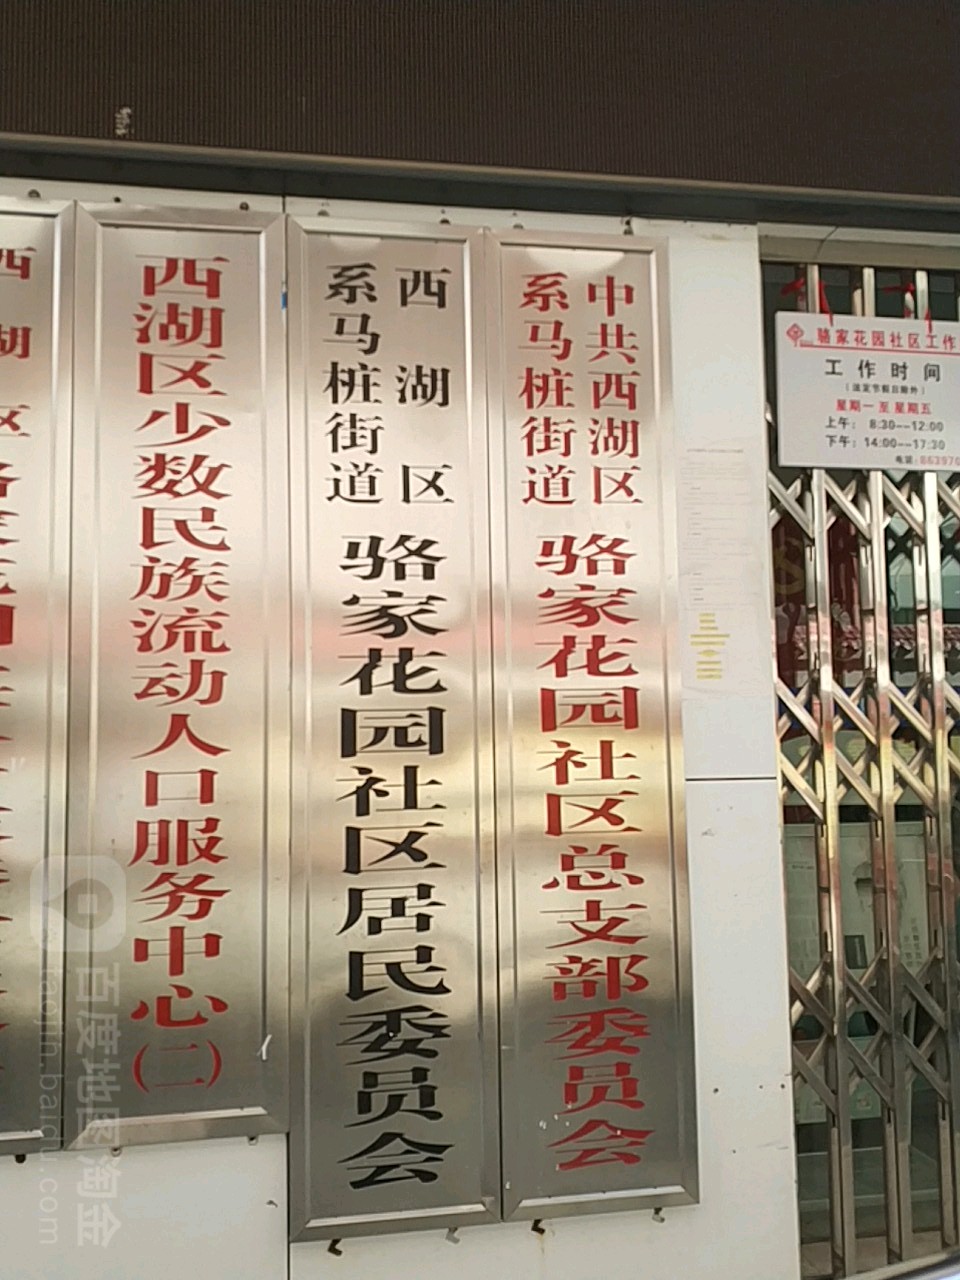 中共西湖区
系马桩街道
骆家花园社区总支部委员会
西湖区
系马桩街道
骆家花园社区居民委员会
西湖区少数民族流动人口服务中心(二)
西湖区
骆家花园社区工作
工作时间
(法定节假日除外)
星期一至星期五
上午: 8:30--12:00
下午: 14:00--17:30
电话:863970
百度地图淘金
taojin.baidu.com